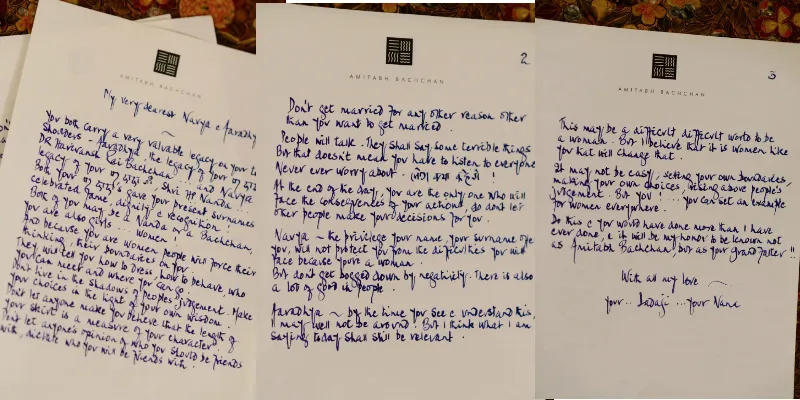 AMITABH BACHCHAN
My very dearest Navya & Aaradhya
You both carry a very valuable legacy on your
shoulders - Aaradhya, the legacy of your
DR Harivansh Rai Bachchan ... and Navya
legacy of your Shri HP Nanda
Both your gave your present surnames
celebrated fame, dignity & recognition!
Both of you may be a Nanda or a Bachchan,
you are also girls ... women!
And because you are women people will force their
thinking, their boundaries on you.
They will tell you how to dress, how to behave, who
you can meet and where you can go.
Don't live in the shadows of people's judgement. Make
your choices in the light of your own wisdom.
Don't let anyone make you believe that the length of
your skirt is a measure of your character.
Don't let anyone's opinion of who you should be friends
with, dictate who you will be friends with.
AMITABH BACHCHAN
2
Don't get married for any other reason other
than you want to get married.
People will talk. They shall say some terrible things
But that doesn't mean you have to listen to everyone
Never ever worry about - (लोग क्या कहेंगे!)
At the end of the day, you are the only one who will
face the consequences of your actions, so dont let
other people make your decisions for you.
Navya ~ the privilege your name, your surname
you, will not protect you from the difficulties you will
face because you're a woman.
But don't get bogged down by negativity. There is also
a lot of good in people.
Aaradhya ~ by the time you see & understand this,
I may well not be around. But I think what I am
saying today shall still be relevant.
AMITABH BACHCHAN
3
This may be a difficult, difficult world to be
a woman. But I believe that it is women like
you that will change that.
It may not be easy, setting your own boundaries,
making your own choices, rising above people's
judgement. But YOU! ... you can set an example
for women everywhere.
Do this & you would have done more than I have
ever done, & it will be my honor to be known not
as Amitabh Bachchan, but as your grandfather!!
With all my love
your.. Dadaji ... your Nana